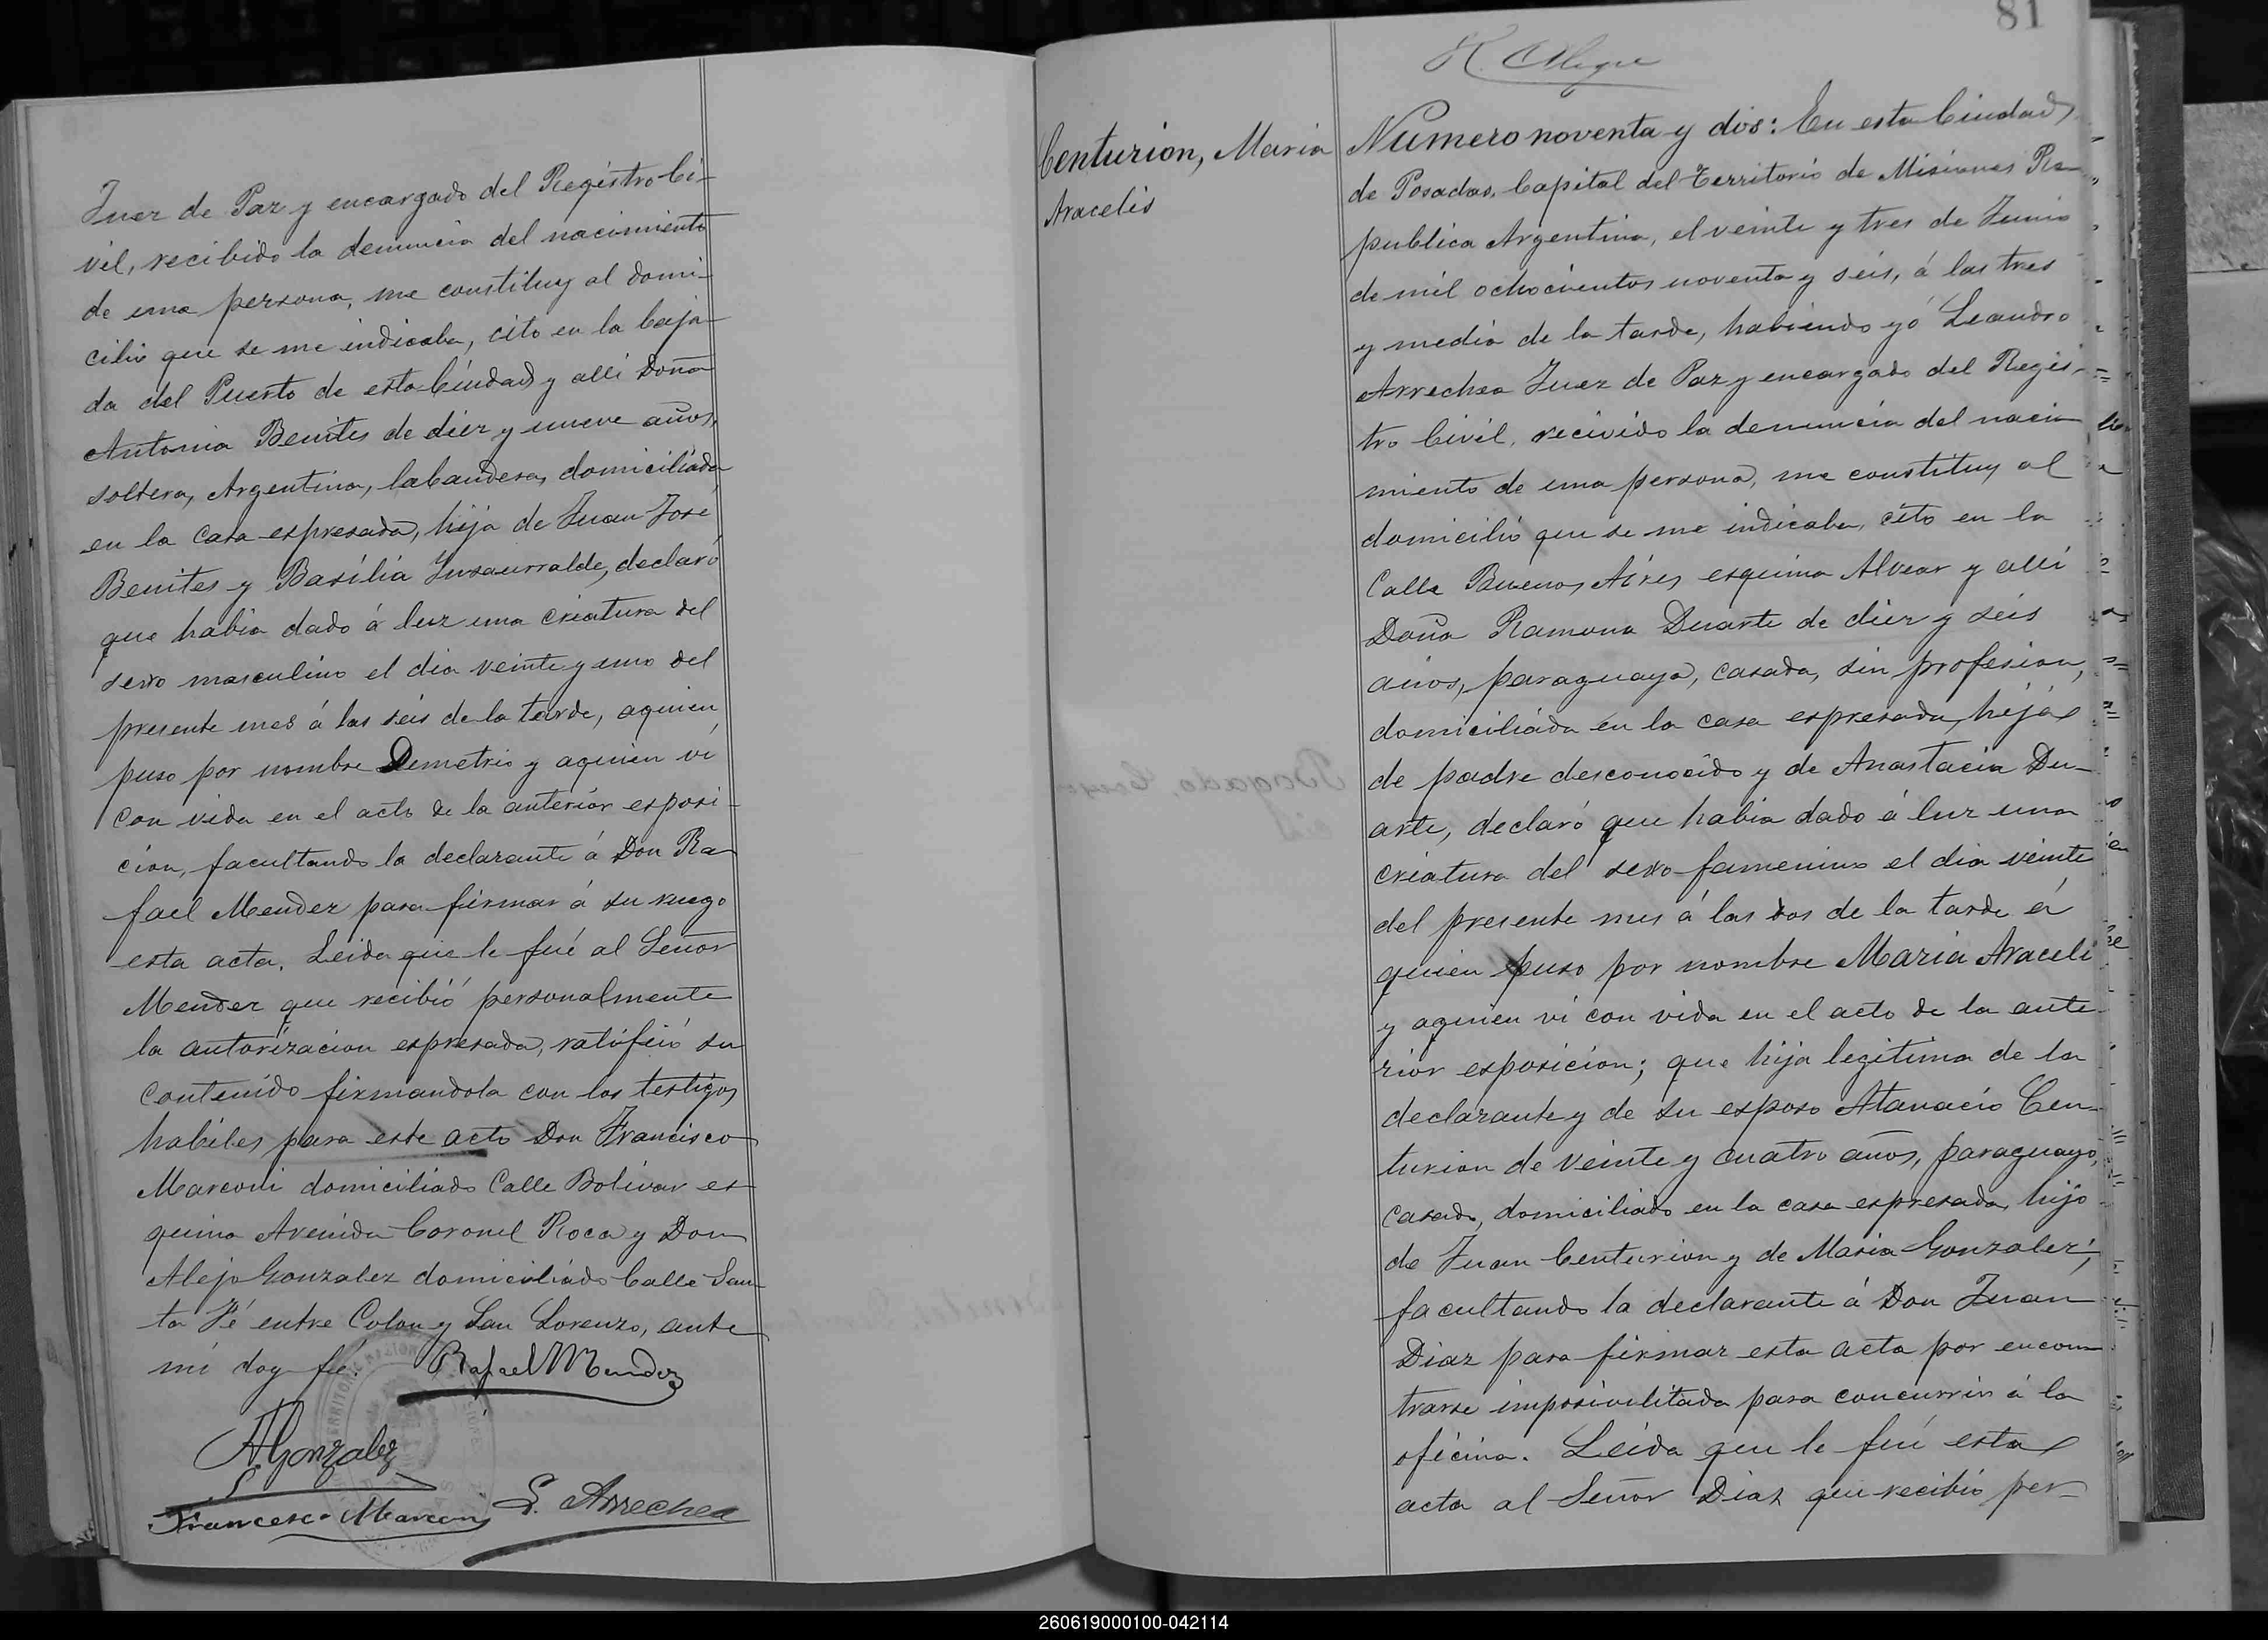 Juez de Paz y encargado del Registro Ci-
vil, recibido la denuncia del nacimiento
de una persona, me constituy al domi-
cilio que se me indicaba, cito en la baja-
da del Puerto de esta Ciudad y alli Doña
Antonia Benites de diez y nueve años,
soltera, Argentina, labandera, domiciliada
en la casa espresada, hija de Juan José
Benites y Basilia Insaurralde, declaró
que habia dado á luz una criatura del
sexo masculino el dia veinte y uno del
presente mes á las seis de la tarde, aquien
puso por nombre Demetrio y aquien vi
con vida en el acto de la anterior esposi-
cion, facultando la declarante á Don Ra-
fael Mendez para firmar á su ruego
esta acta. Leida que le fué al Señor
Mendez que recibió personalmente
la autorizacion espresada, ratificó su
contenido firmandola con los testigos
habiles para este acto Don Francisco
Marconi domiciliado Calle Bolivar es-
quina Avenida Coronel Roca y Don
Alejo Gonzalez domiciliado Calle San-
ta Fé entre Colon y San Lorenzo, ante
mi doy fé. Rafael Mendez
A Gonzalez
Francesco Marconi L. Arrechea
81
R. Alegre
Centurion, Maria
Aracelis
Numero noventa y dos: En esta Ciudad
de Posadas, Capital del Territorio de Misiones Re-
publica Argentina, el veinte y tres de Junio
de mil ochocientos noventa y seis, á las tres
y media de la tarde, habiendo yó Leandro
Arrechea Juez de Paz y encargado del Regis-
tro Civil, recivido la denuncia del naci-
miento de una persona, me constituy al
domicilio que se me indicaba, cito en la
Calle Buenos Aires esquina Alvear y alli
Doña Ramona Duarte de diez y seis
años, paraguaya, casada, sin profesion,
domiciliada en la casa espresada, hija
de padre desconocido y de Anastacia Du-
arte, declaró que habia dado á luz una
criatura del sexo femenino el dia veinte
del presente mes á las dos de la tarde á
quien puso por nombre Maria Araceli
y aquien vi con vida en el acto de la ante-
rior esposicion; que hija legitima de la
declarante y de su esposo Atanacio Cen-
turion de veinte y cuatro años, paraguayo,
casado, domiciliado en la casa espresada, hijo
de Juan Centurion y de Maria Gonzalez;
facultando la declarante á Don Juan
Diaz para firmar esta acta por encon-
trarse imposivilitada para concurrir á la
oficina. Leida que le fué esta
acta al Señor Diaz que recibió per-
260619000100-042114